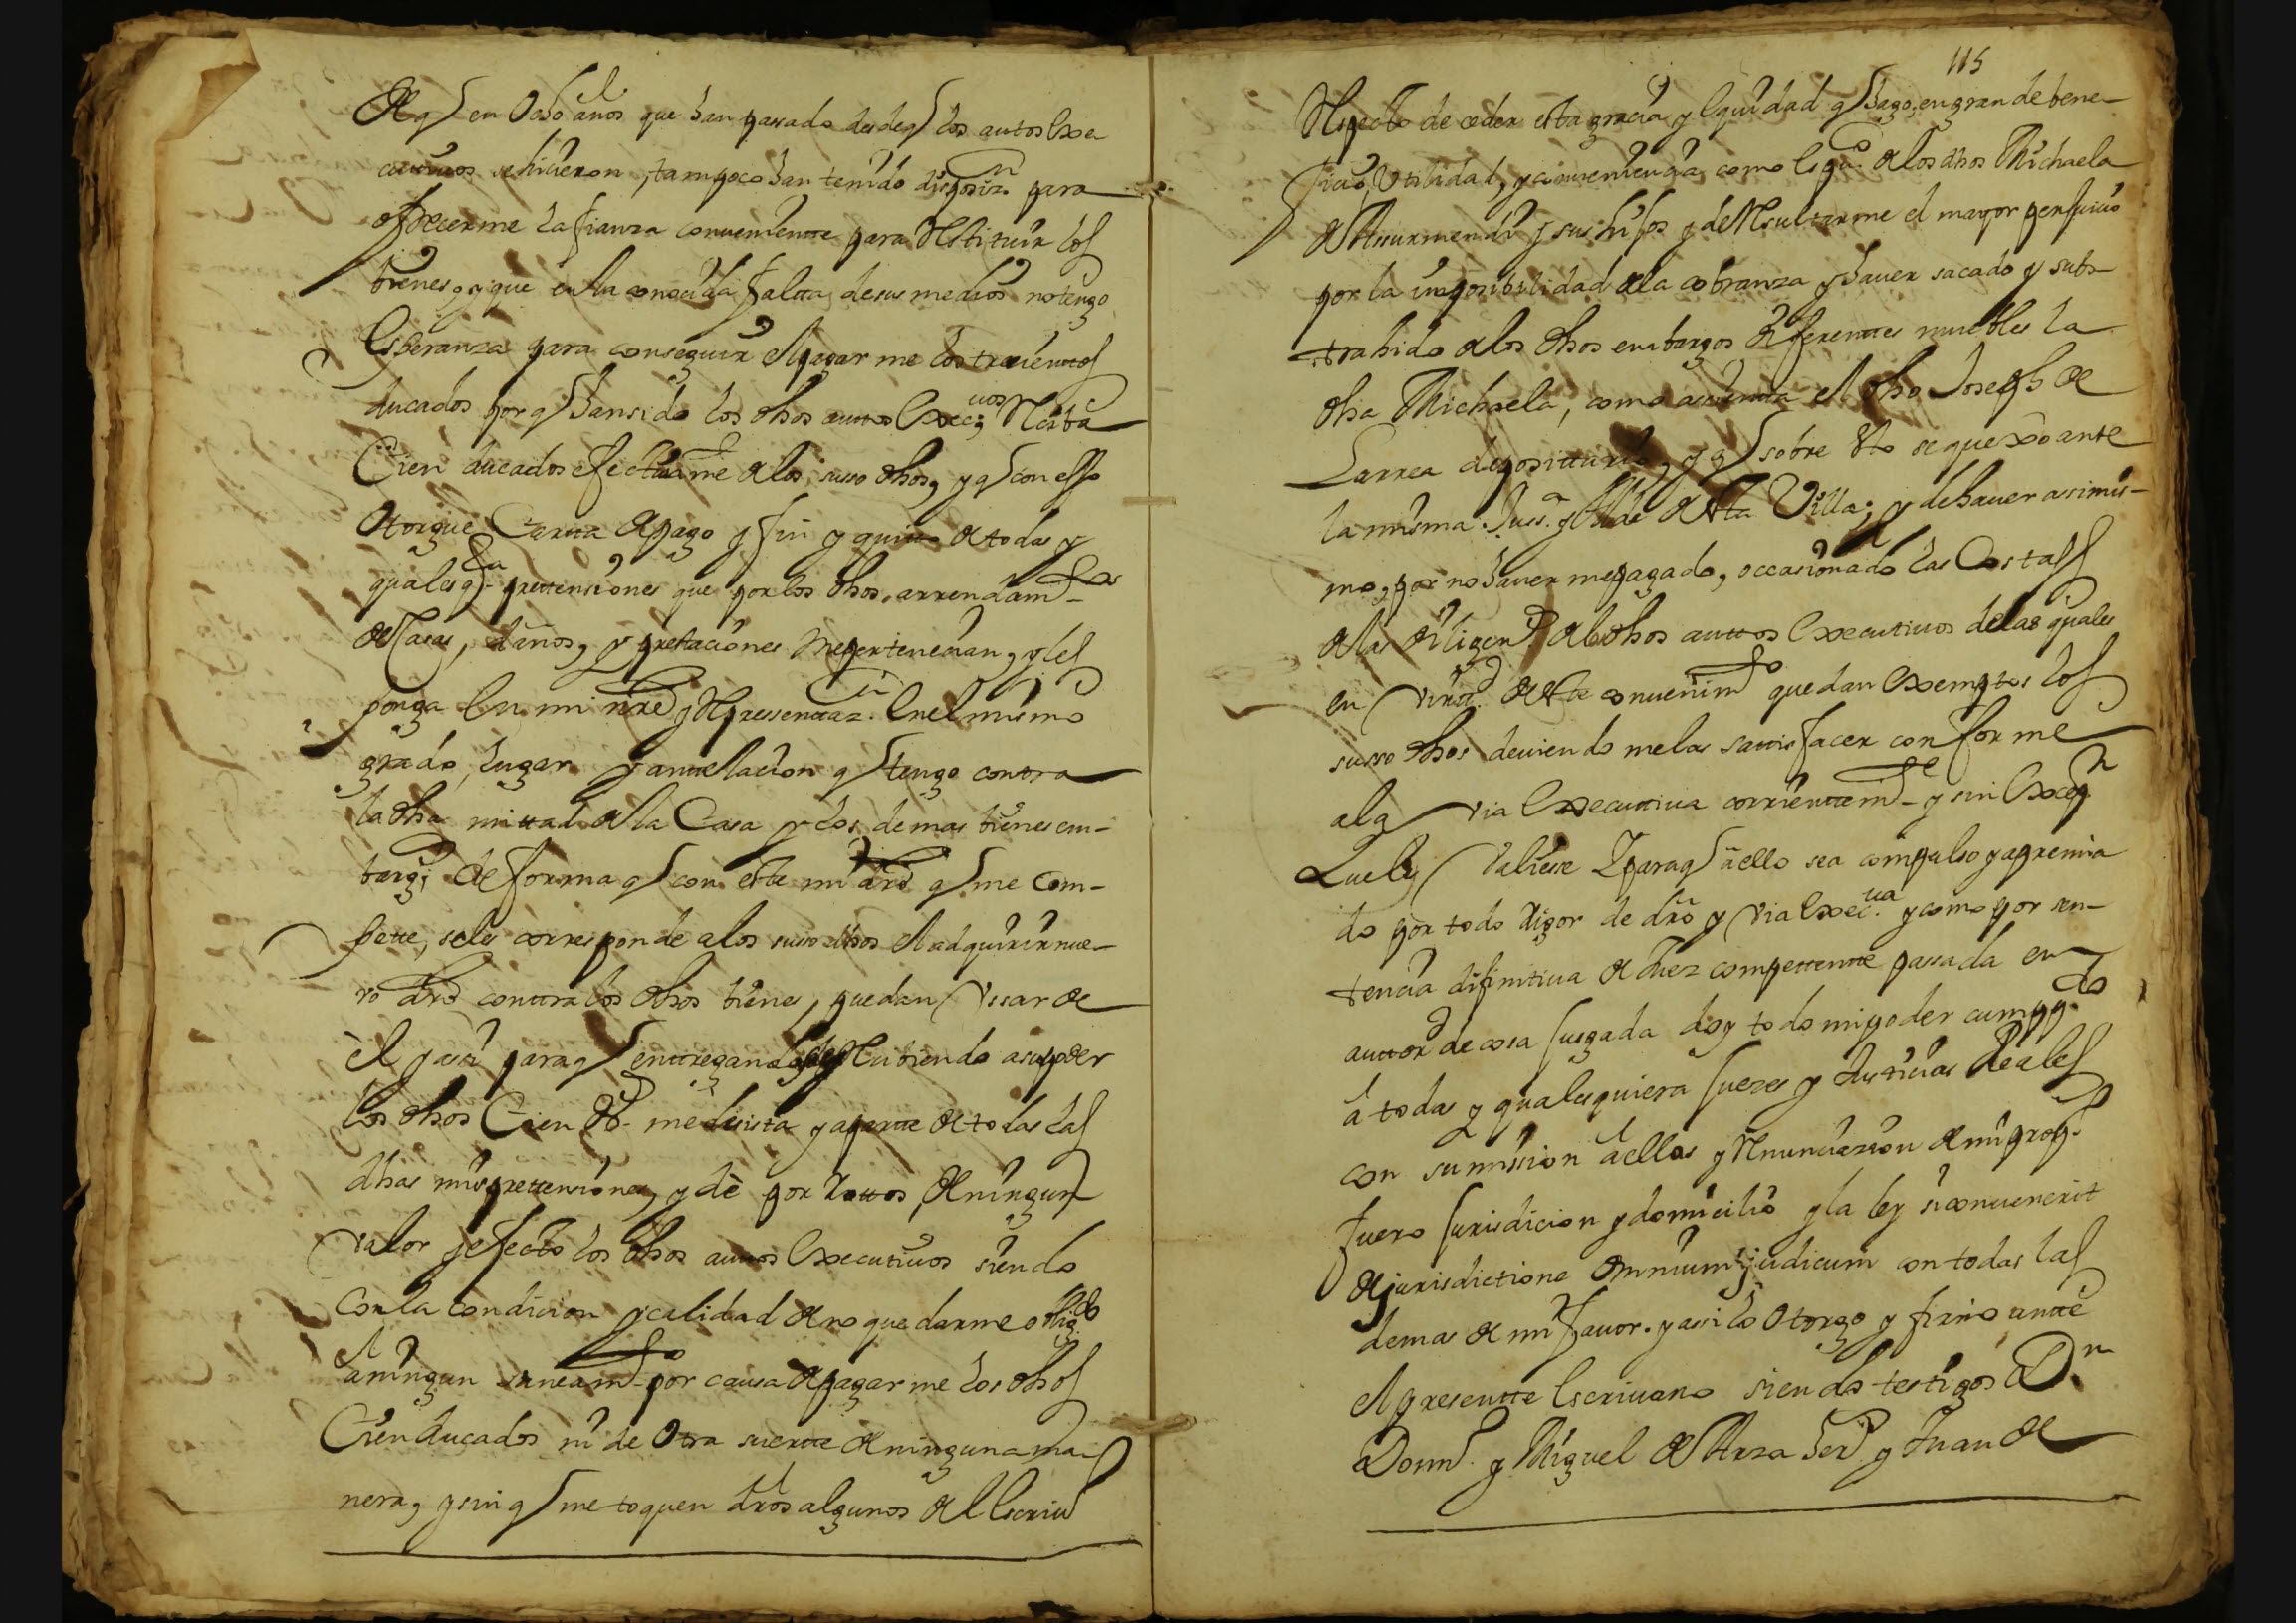 de q en ocho años que han pasado desde q los autos exe
cutiuos se hiçieron, tampoco han tenido dispoziᵒⁿ para
ofrecerme la fianza conueniente para restituir los
bienes, y que en su conocida falta de sus medios no tengo
esperanza para conseguir el pagar me los trecientos
ducados por q han sido los dhos auttos execᵘᵒˢ reciba
Cien ducados efectiuamᵗᵉ de los suso dhos, y q con esso
otorgue Carta de pago y fin y quitto de todas y
qualesqᵘʳᵃ prettensiones que por los dhos, arrendamᵗᵒˢ
de Casas, daños, y prestaciones me pertenecian, y les
ponga en mi nre y representazᵒⁿ en el mismo
grado, lugar y antelacion q tengo contra
la dha mittad de la Casa y los demas bienes em-
bargᵒˢ de forma q con este mi dro q me com-
pette, se les corresponde a los suso dhos el adquirir nue-
vo dro conttra los dhos bienes, puedan vssar de
el y assi para q enttregando y reciuiendo a su poder
los dhos Cien dᵒˢ me desista y aparte de todas las
dhas mis prettensiones, y dè por rottos, de ningun
valor y efecto los dhos auttos executiuos siendo
con la condicion y calidad de no quedarme obligᵈᵒ
à ningun saneamᵗᵒ por causa de pagarme los dhos
Cien ducados ni de otra suertte de ninguna ma-
nera, y sin q me toquen dros algunos del escriuᵒ
115
respecto de ceder esta gracia y equidad q hago, en grande bene-
ficio, vtilidad, y combeniencia como es pᵘᶜᵒ de los dhos Michaela
de Assurmendi y sus hijos y de resultarme el mayor perjuicio
por la imposibilidad de la cobranza y hauer sacado y subs-
trahido de los dhos embargos diferenttes muebles la
dha Michaela, como assienta el dho Joseph de
Larrea depositturio, y q sobre esto se quexo ante
la misma Jusᵃ y Allde de esta Villa; y de hauer assimis-
mo, por no hauerme pagado, occasionado las Costass
de las diligenᵃˢ de los dhos auttos executiuos de las quales
en virtᵈ de este conuenimᵗᵒ quedan exemptos los
suso dhos deuiendomelas sattisfacer conforme
a la via executtiua corrienttemᵗᵉ y sin excepᵒⁿ
que les valiesse Y para q à ello sea compulso y apremia
do por todo rigor de dro y via execᵘᵃ y como por sen-
tencia difinitiua de Juez compettentte passada en
auttoᵈ de cosa Juzgada doy todo mi poder cumpᵈᵒ
à todas y qualesquiera Juezes y Justicias Reales
con sumision à ellas y renunciazion de mi propᵒ
fuero Jurisdicion y domicilio y la ley si conuenerit
de jurisdictione omnium judicum con todas las
demas de mi fauor. y assi lo otorgo y firmo antte
el presentte escriuano siendo testigos Dⁿ
Domᵒ y Miguel de Arza herᵒˢ y Juan de